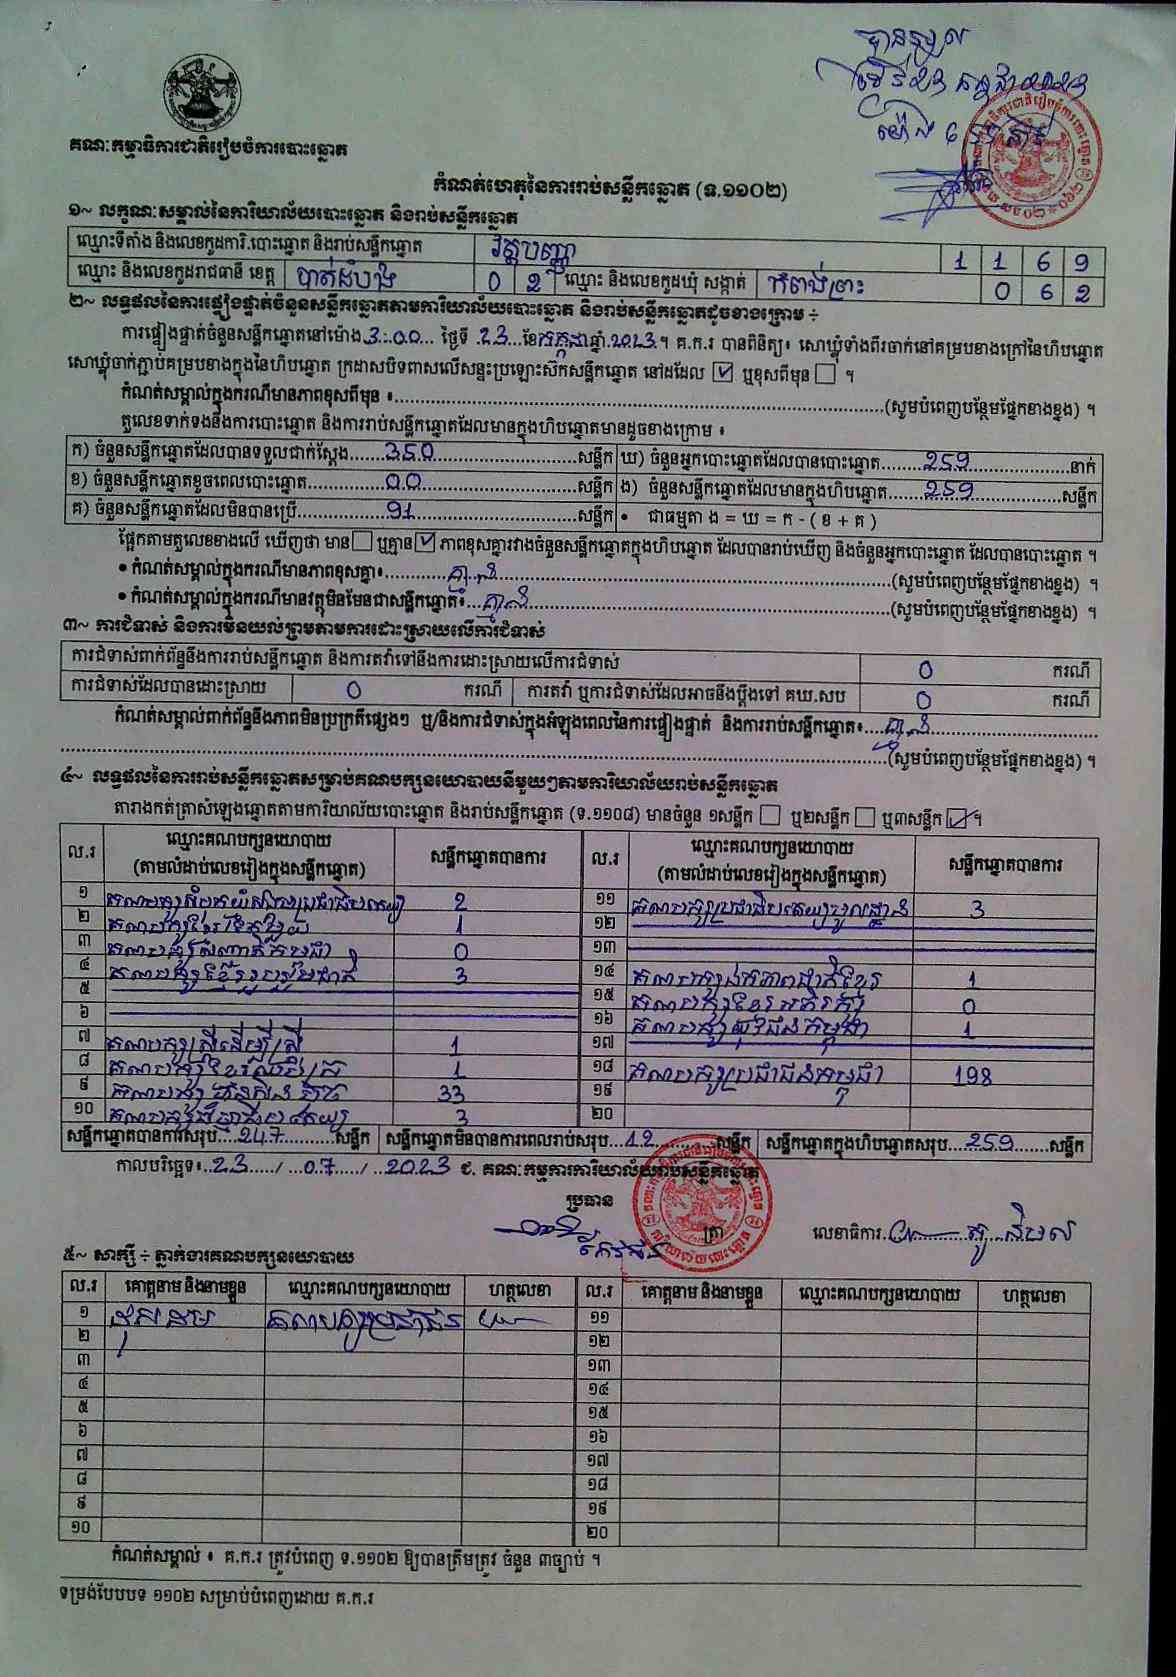 បានទទួល
ថ្ងៃទី 23 កក្កដា 2023
ម៉ោង 6
គណៈកម្មាធិការជាតិរៀបចំការបោះឆ្នោត
កំណត់ហេតុនៃការរាប់សន្លឹកឆ្នោត (ទ.១១០២)
១~ លក្ខណៈសម្គាល់នៃការិយាល័យបោះឆ្នោត និងរាប់សន្លឹកឆ្នោត
ឈ្មោះទីតាំង និងលេខកូដការិ.បោះឆ្នោត និងរាប់សន្លឹកឆ្នោត វត្តបញ្ញា 1 1 6 9
ឈ្មោះ និងលេខកូដរាជធានី ខេត្ត បាត់ដំបង 0 2 ឈ្មោះ និងលេខកូដឃុំ សង្កាត់ កំពង់ព្រះ 0 6 2
២~ លទ្ធផលនៃការផ្ទៀងផ្ទាត់ចំនួនសន្លឹកឆ្នោតតាមការិយាល័យបោះឆ្នោត និងរាប់សន្លឹកឆ្នោតដូចខាងក្រោម ÷
ការផ្ទៀងផ្ទាត់ចំនួនសន្លឹកឆ្នោតនៅម៉ោង 3:00 ថ្ងៃទី 23 ខែ កក្កដា ឆ្នាំ 2023 ។ គ.ក.រ បានពិនិត្យ៖ សោឃ្លុំទាំងពីរចាក់នៅគម្របខាងក្រៅនៃហិបឆ្នោត
សោឃ្លុំចាក់ភ្ជាប់គម្របខាងក្នុងនៃហិបឆ្នោត ក្រដាសបិទពាសលើសន្ទះប្រឡោះស៊កសន្លឹកឆ្នោត នៅដដែល ☑ ឬខុសពីមុន ☐ ។
កំណត់សម្គាល់ក្នុងករណីមានភាពខុសពីមុន ៖ (សូមបំពេញបន្ថែមផ្នែកខាងខ្នង) ។
តួលេខទាក់ទងនឹងការបោះឆ្នោត និងការរាប់សន្លឹកឆ្នោតដែលមានក្នុងហិបឆ្នោតមានដូចខាងក្រោម ៖
ក) ចំនួនសន្លឹកឆ្នោតដែលបានទទួលជាក់ស្តែង 350 សន្លឹក ឃ) ចំនួនអ្នកបោះឆ្នោតដែលបានបោះឆ្នោត 259 នាក់
ខ) ចំនួនសន្លឹកឆ្នោតខូចពេលបោះឆ្នោត 00 សន្លឹក ង) ចំនួនសន្លឹកឆ្នោតដែលមានក្នុងហិបឆ្នោត 259 សន្លឹក
គ) ចំនួនសន្លឹកឆ្នោតដែលមិនបានប្រើ 91 សន្លឹក • ជាធម្មតា ង = ឃ = ក - ( ខ + គ )
ផ្អែកតាមតួលេខខាងលើ ឃើញថា មាន ☐ ឬគ្មាន ☑ ភាពខុសគ្នារវាងចំនួនសន្លឹកឆ្នោតក្នុងហិបឆ្នោត ដែលបានរាប់ឃើញ និងចំនួនអ្នកបោះឆ្នោត ដែលបានបោះឆ្នោត ។
• កំណត់សម្គាល់ក្នុងករណីមានភាពខុសគ្នា៖ គ្មាន (សូមបំពេញបន្ថែមផ្នែកខាងខ្នង) ។
• កំណត់សម្គាល់ក្នុងករណីមានវត្ថុមិនមែនជាសន្លឹកឆ្នោត៖ គ្មាន (សូមបំពេញបន្ថែមផ្នែកខាងខ្នង) ។
៣~ ការជំទាស់ និងការមិនយល់ព្រមតាមការដោះស្រាយលើការជំទាស់
ការជំទាស់ពាក់ព័ន្ធនឹងការរាប់សន្លឹកឆ្នោត និងការតវ៉ាទៅនឹងការដោះស្រាយលើការជំទាស់ 0 ករណី
ការជំទាស់ដែលបានដោះស្រាយ 0 ករណី ការតវ៉ា ឬការជំទាស់ដែលអាចនឹងប្តឹងទៅ គឃ.សប 0 ករណី
កំណត់សម្គាល់ពាក់ព័ន្ធនឹងភាពមិនប្រក្រតីផ្សេងៗ ឬ/និងការជំទាស់ក្នុងអំឡុងពេលនៃការផ្ទៀងផ្ទាត់ និងការរាប់សន្លឹកឆ្នោត៖ គ្មាន
(សូមបំពេញបន្ថែមផ្នែកខាងខ្នង) ។
៤~ លទ្ធផលនៃការរាប់សន្លឹកឆ្នោតសម្រាប់គណបក្សនយោបាយនីមួយៗតាមការិយាល័យរាប់សន្លឹកឆ្នោត
តារាងកត់ត្រាសំឡេងឆ្នោតតាមការិយាល័យបោះឆ្នោត និងរាប់សន្លឹកឆ្នោត (ទ.១១០៨) មានចំនួន ១សន្លឹក ☐ ឬ២សន្លឹក ☐ ឬ៣សន្លឹក ☑ ។
ល.រ ឈ្មោះគណបក្សនយោបាយ (តាមលំដាប់លេខរៀងក្នុងសន្លឹកឆ្នោត) សន្លឹកឆ្នោតបានការ ល.រ ឈ្មោះគណបក្សនយោបាយ (តាមលំដាប់លេខរៀងក្នុងសន្លឹកឆ្នោត) សន្លឹកឆ្នោតបានការ
១ គណបក្សសំបុកឃ្មុំសង្គមប្រជាធិបតេយ្យ 2 ១១ គណបក្សប្រជាធិបតេយ្យមូលដ្ឋាន 3
២ គណបក្សខ្មែរតែមួយ 1 ១២
៣ គណបក្សសញ្ជាតិកម្ពុជា 0 ១៣
៤ គណបក្សខ្មែររួបរួមជាតិ 3 ១៤ គណបក្សឯកភាពជាតិខ្មែរ 1
៥ ១៥ គណបក្សខ្មែរអភិរក្ស 0
៦ ១៦ គណបក្សយុវជនកម្ពុជា 1
៧ គណបក្សស្ត្រីដើម្បីស្ត្រី 1 ១៧
៨ គណបក្សខ្មែរឈប់ក្រ 1 ១៨ គណបក្សប្រជាជនកម្ពុជា 198
៩ គណបក្សហ្វ៊ុនស៊ិនប៉ិច 33 ១៩
១០ គណបក្សធម្មាធិបតេយ្យ 3 ២០
សន្លឹកឆ្នោតបានការសរុប 247 សន្លឹក សន្លឹកឆ្នោតមិនបានការពេលរាប់សរុប 12 សន្លឹក សន្លឹកឆ្នោតក្នុងហិបឆ្នោតសរុប 259 សន្លឹក
កាលបរិច្ឆេទ៖ 23 / 07 / 2023 ជ. គណៈកម្មការការិយាល័យរាប់សន្លឹកឆ្នោត
ប្រធាន
ត្រា
លេខាធិការ
៥~ សាក្សី ÷ ភ្នាក់ងារគណបក្សនយោបាយ
ល.រ គោត្តនាម និងនាមខ្លួន ឈ្មោះគណបក្សនយោបាយ ហត្ថលេខា ល.រ គោត្តនាម និងនាមខ្លួន ឈ្មោះគណបក្សនយោបាយ ហត្ថលេខា
១ គណបក្សប្រជាជន ១១
២ ១២
៣ ១៣
៤ ១៤
៥ ១៥
៦ ១៦
៧ ១៧
៨ ១៨
៩ ១៩
១០ ២០
កំណត់សម្គាល់ ៖ គ.ក.រ ត្រូវបំពេញ ទ.១១០២ ឱ្យបានត្រឹមត្រូវ ចំនួន ៣ច្បាប់ ។
ទម្រង់បែបបទ ១១០២ សម្រាប់បំពេញដោយ គ.ក.រ